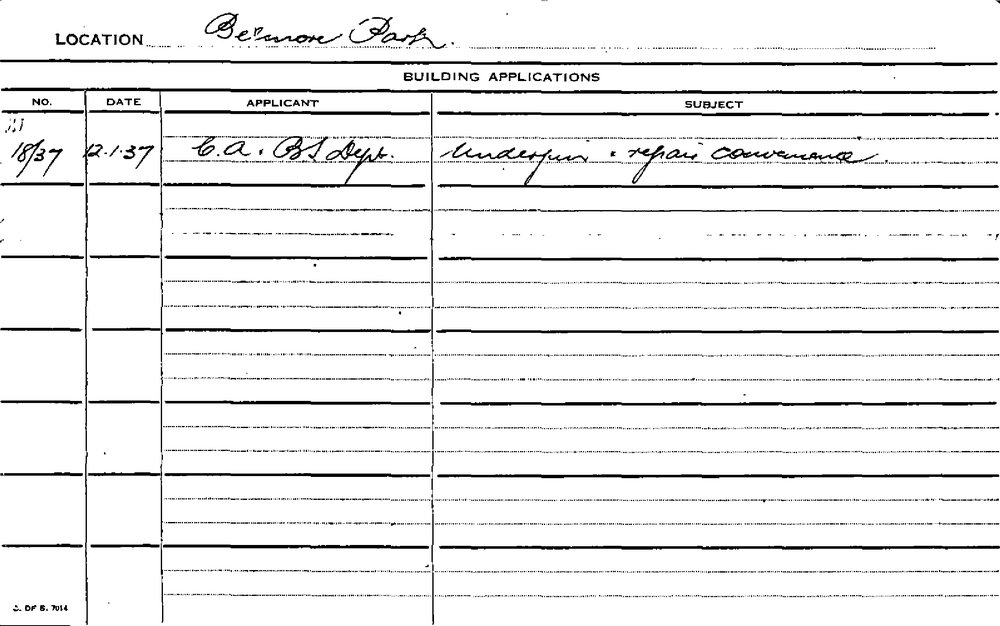 LOCATION Belmore Park.
BUILDING APPLICATIONS
NO. DATE APPLICANT SUBJECT
18/37 12.1.37 C.A. & B.S Dept. Underpin & repair convenience.